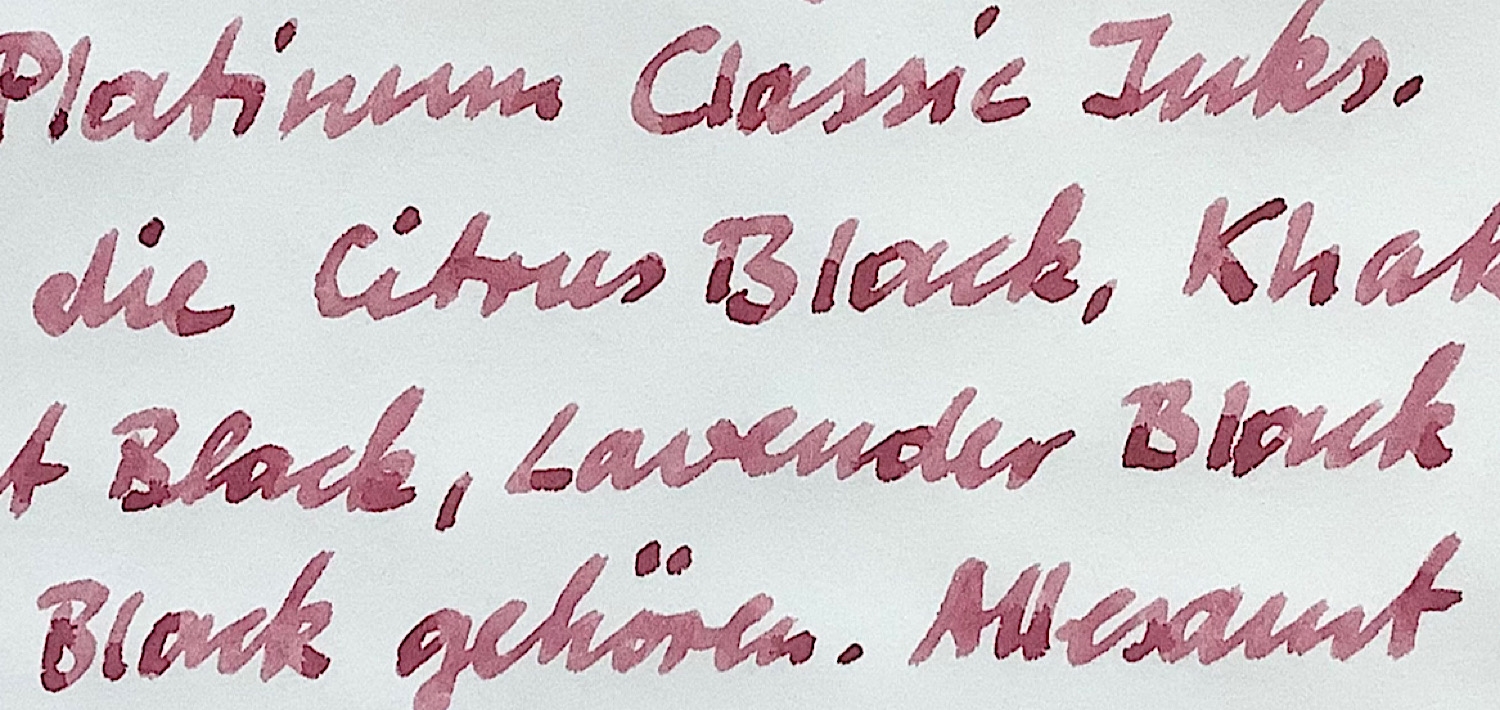 Platinum Classic Inks.
die Citrus Black, Khak
t Black, Lavender Black
Black gehören. Allesamt